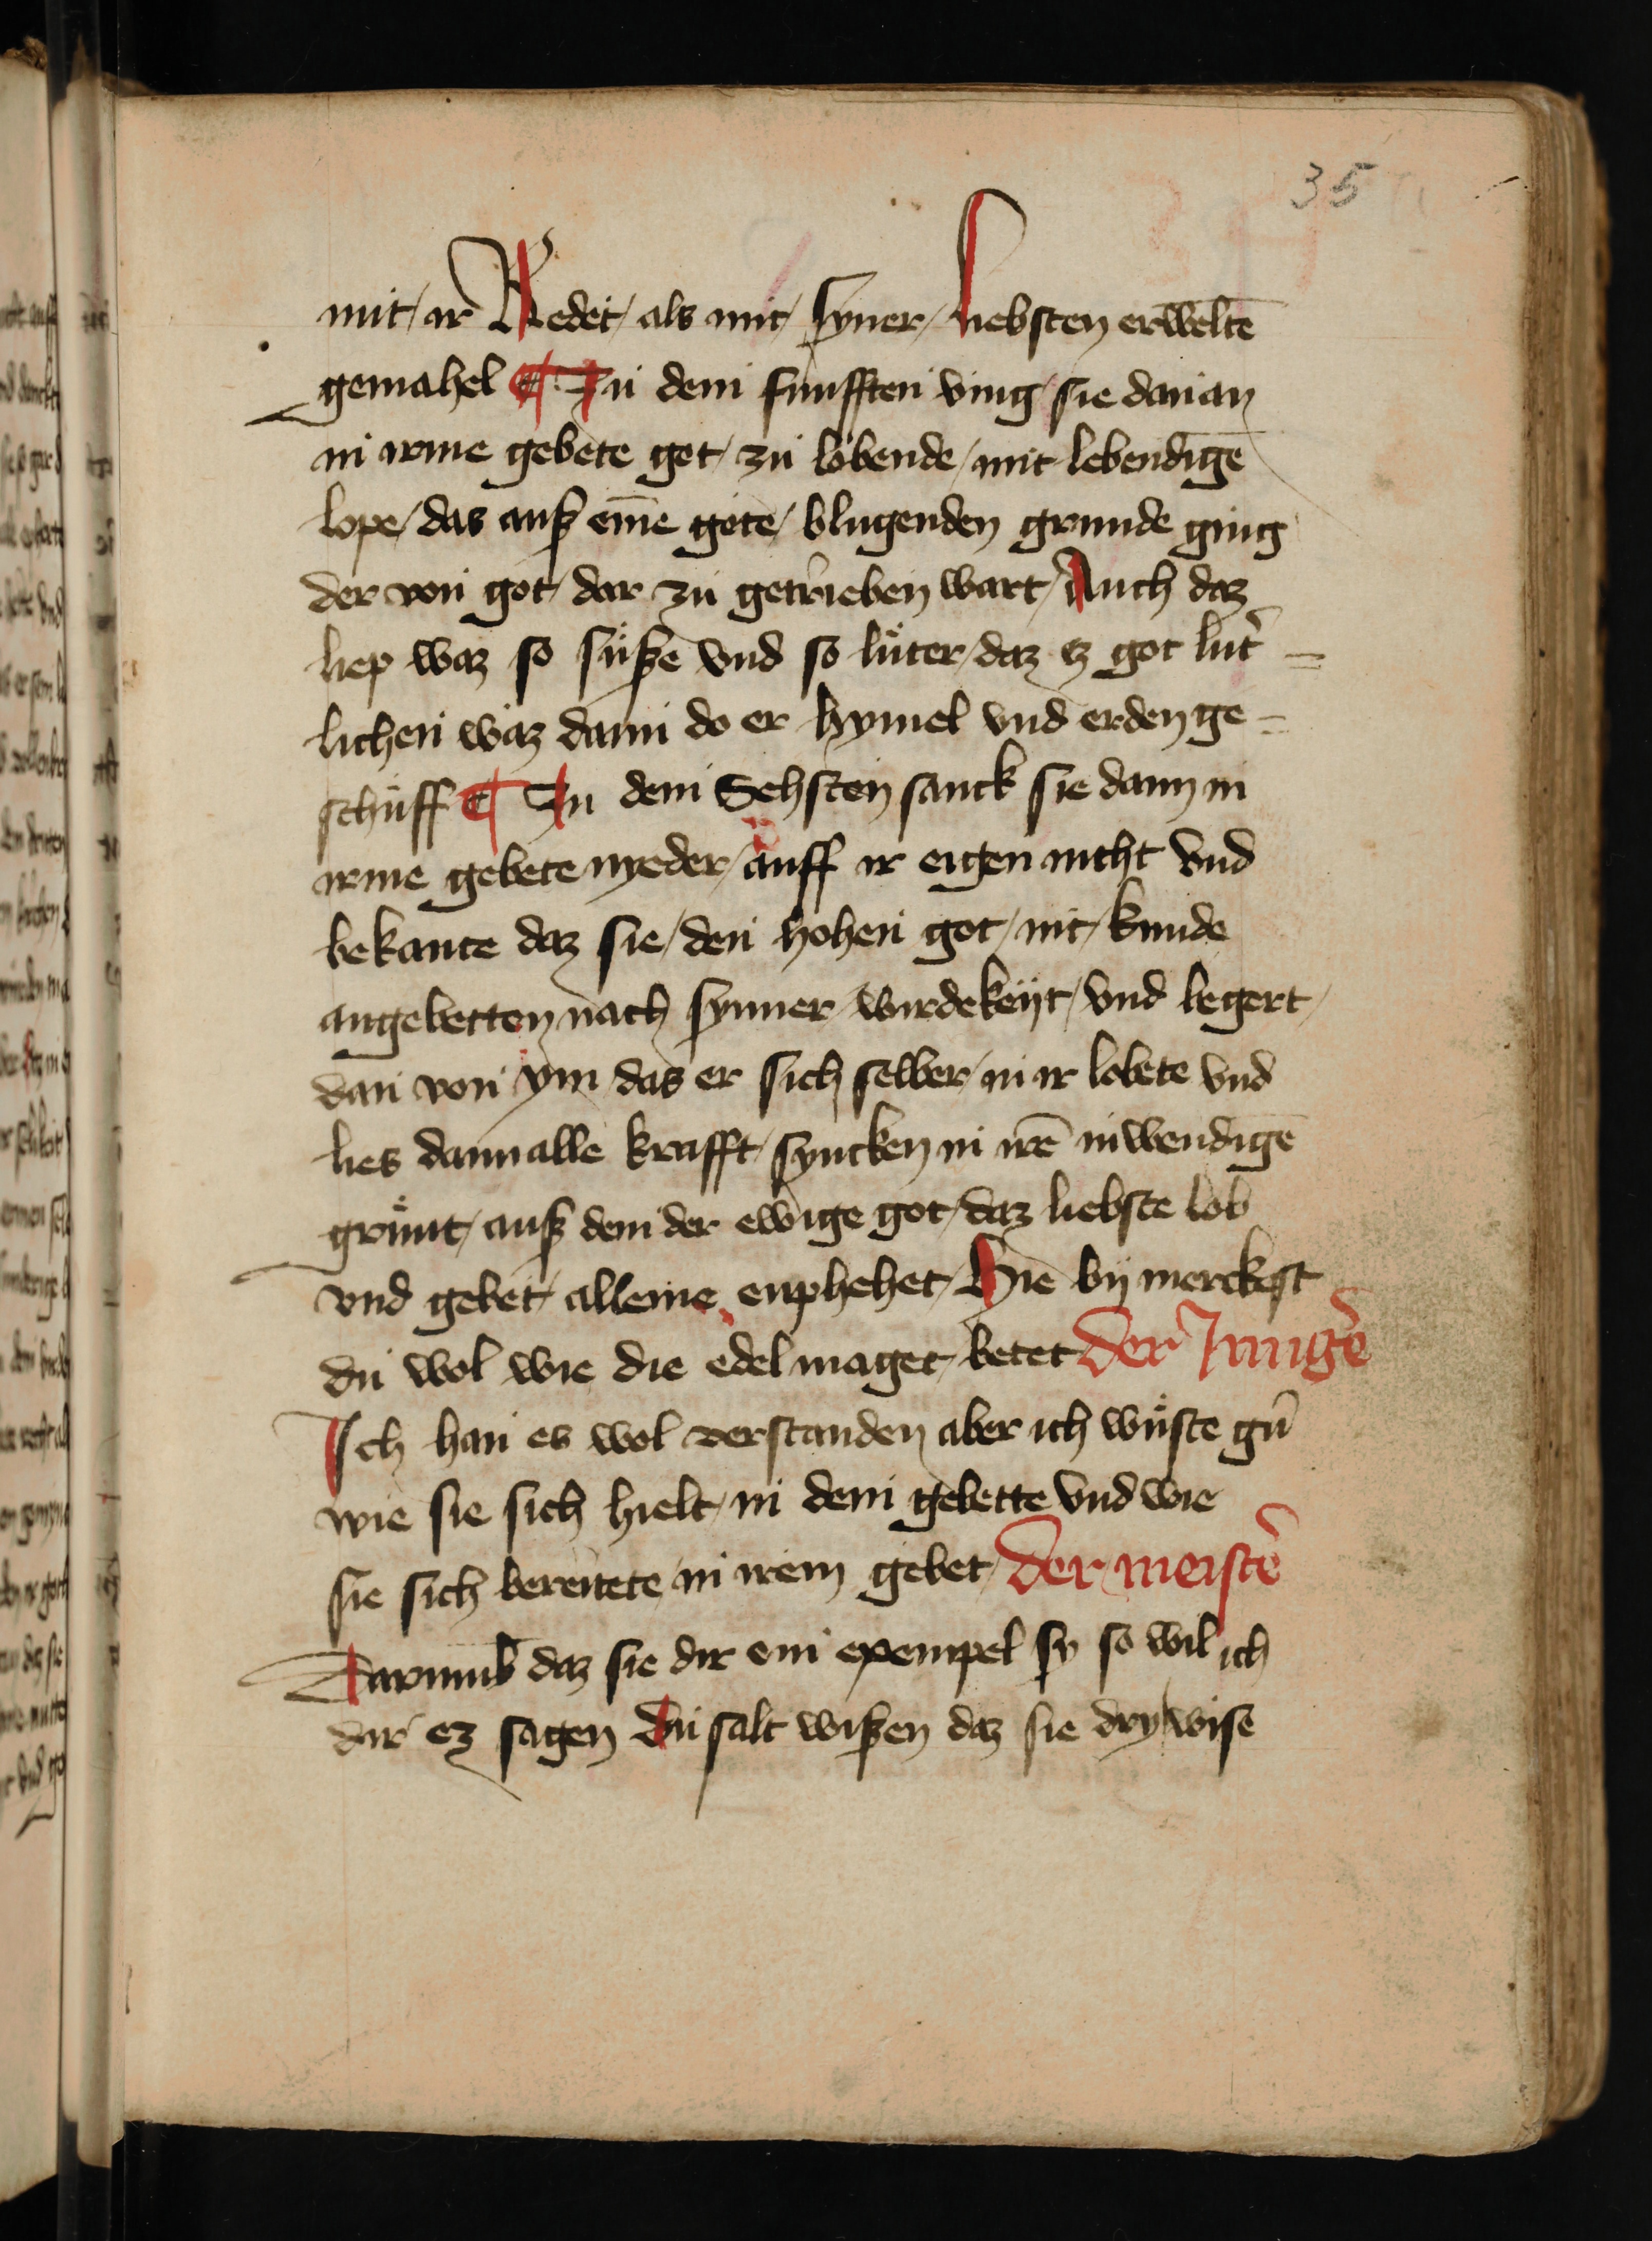 35
mit / ir Redet / als mit / syner / liebsten erwelte̅
gemahel ¶ In dem funfften ving / sie dan an
in irme gebete got / zu lobende / mit lebendige̅
lope / das auß eime gote / blugenden grunde ging
der von got / dar zu getrieben wart / Auch daz
liep waz so suͤße vnd so luͤter / daz ez got lut͛ =
lichen waz dann do er hymel vnd erden ge =
schuff ¶ In dem Sehsten sanck sie dann in
irme gebete nyeder / auff ir eigen nicht vnd
bekante daz sie / den hohen got / nit / kunde
angebetten nach synner / wirdekeyt / vnd begert /
dan von ym / das er sich selber / in ir lobete vnd
lies dann alle krafft / syncken in ire̅ inwendige̅
gruͤnt / auß dem der ewige got / daz liebste lob
vnd gebet / alleine enphehet / Hie by merckest
du wol wie die edel maget / betet Der Jung͛e
Ich han es wol verstanden aber ich wuͤste g͛n
wie sie sich hielt / in dem gebette vnd wie
sie sich bereitete in irem gebet / Der meist͛e
Darumb daz sie dir ein exempel sy so wil ich
dir ez sagen Du salt wißen daz sie dry wise